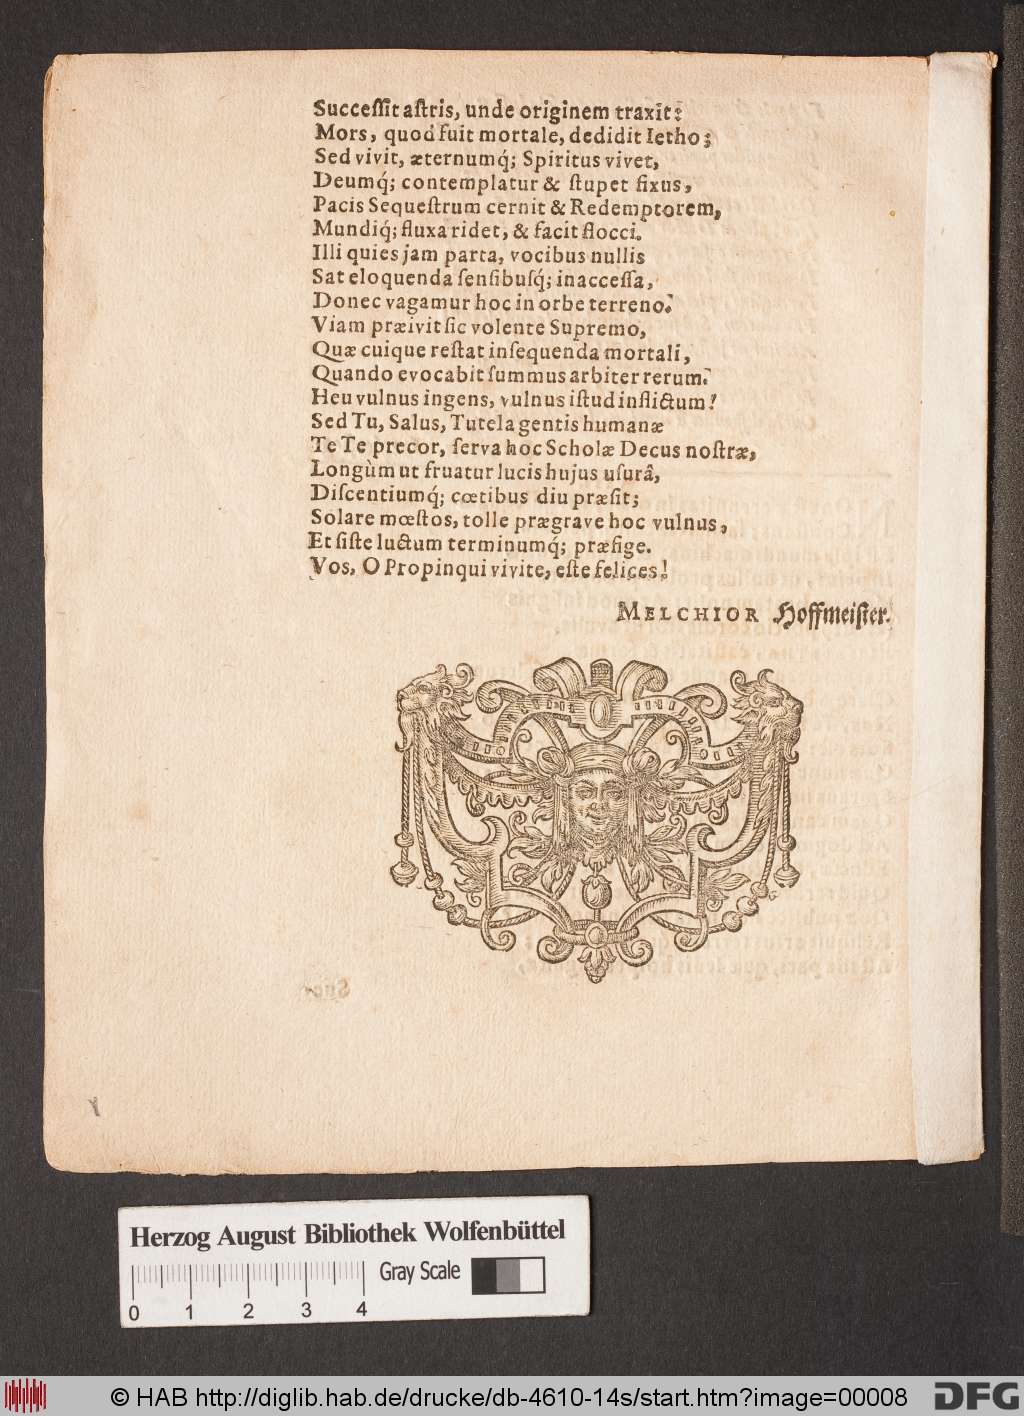 Succeſſit aſtris, unde originem traxit:
Mors, quod fuit mortale, dedidit letho;
Sed vivit, æternumq́; Spiritus vivet,
Deumq́; contemplatur & ſtupet fixus,
Pacis Sequeſtrum cernit & Redemptorem,
Mundiq́; fluxa ridet, & facit flocci.
Illi quies jam parta, vocibus nullis
Sat eloquenda ſenſibuſq́; inacceſſa,
Donec vagamur hoc in orbe terreno.
Viam præivit ſic volente Supremo,
Quæ cuique reſtat inſequenda mortali,
Quando evocabit ſummus arbiter rerum.
Heu vulnus ingens, vulnus iſtud inflictum!
Sed Tu, Salus, Tutela gentis humanæ
Te Te precor, ſerva hoc Scholæ Decus noſtræ,
Longùm ut fruatur lucis hujus uſurâ,
Diſcentiumq́; cœtibus diu præſit;
Solare mœſtos, tolle prægrave hoc vulnus,
Et ſiſte luctum terminumq́; præfige.
Vos, O Propinqui vivite, eſte felices!
MELCHIOR Hoffmeiſter.
Herzog August Bibliothek Wolfenbüttel
Gray Scale
0 1 2 3 4
© HAB http://diglib.hab.de/drucke/db-4610-14s/start.htm?image=00008
DFG